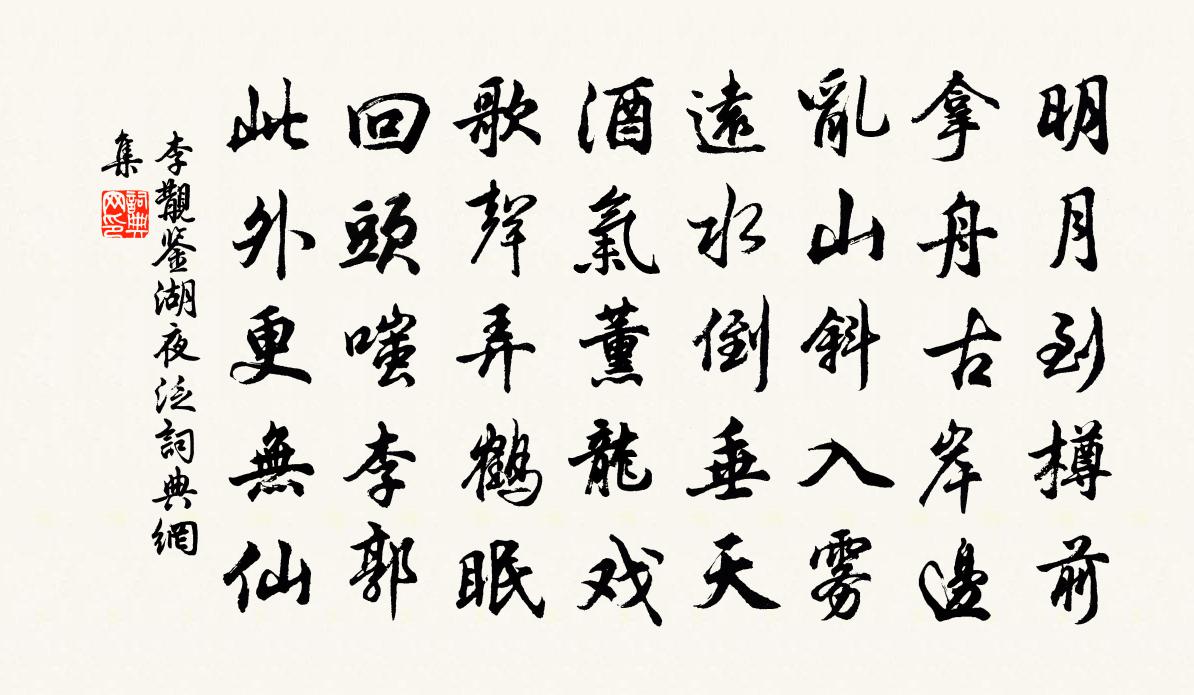 明月到樽前
拿舟古岸邊
亂山斜入雾
遠水倒垂天
酒氣薰龍戏
歌聲弄鶴眠
回頭嗤李郭
此外更無仙
李覯鉴湖夜泛詞典網
集
詞典网印